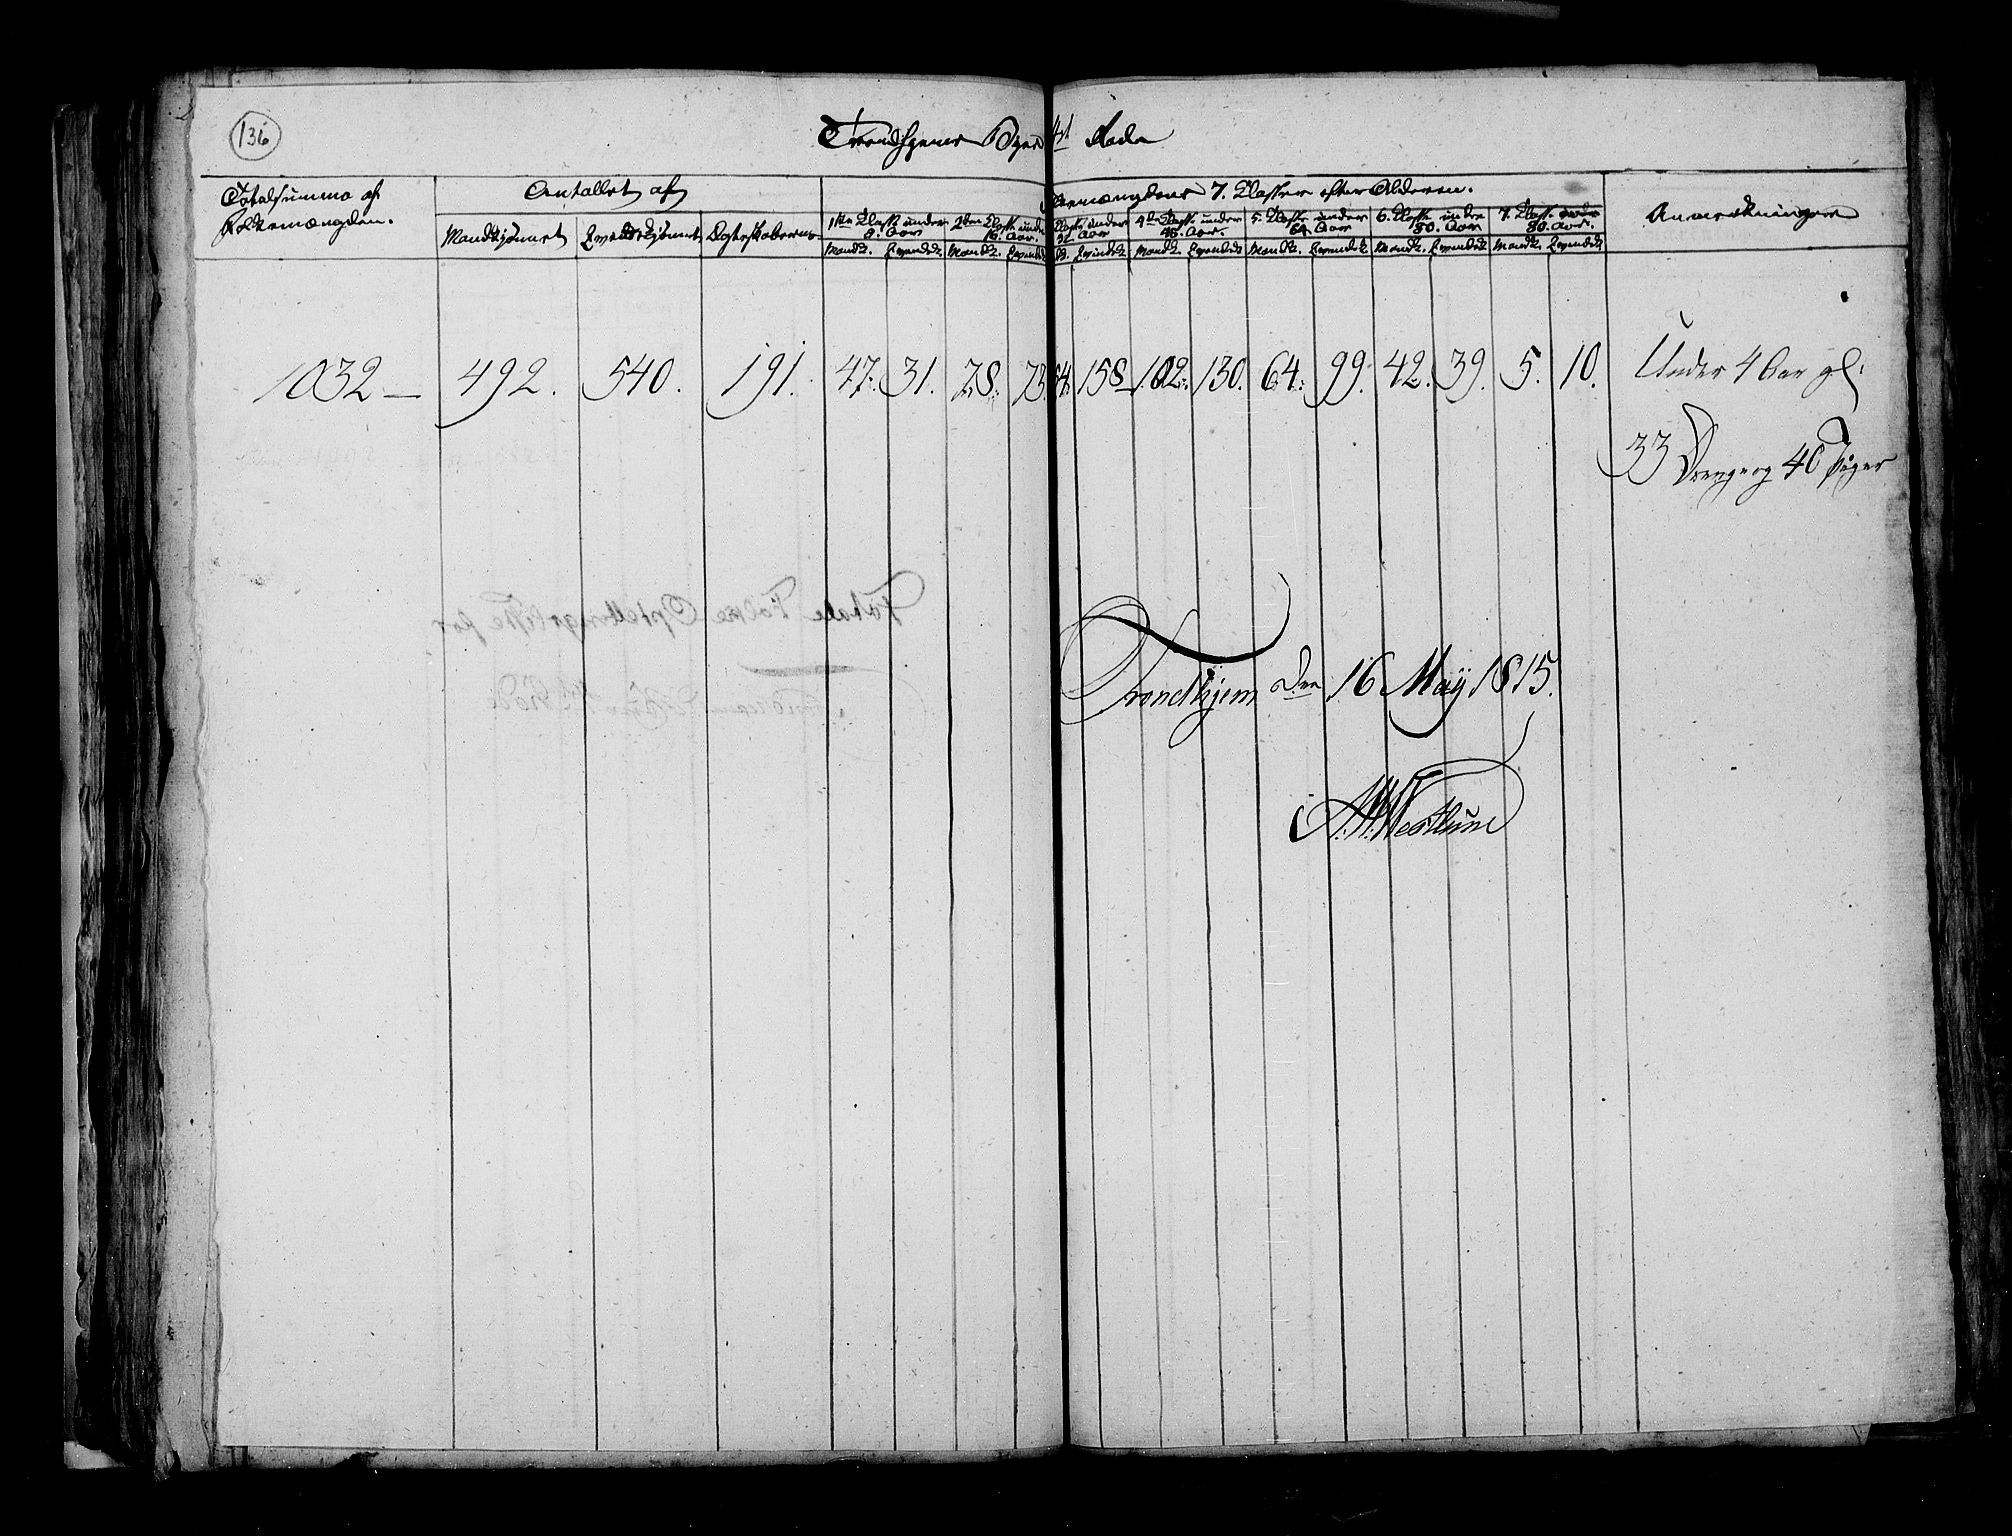 136
Trondhjems Byes 4de Rode
Totalsumma af Folkemængden.
Antallet af
kemængdens 7. Classer efter Alderen.
Anmerkninger
Mandkjønnet Qvindekjønnet Ægteskaberne
1ste Classe under 8. Aar
2den Classe unde 16. Aar.
Classe under 32 Aar
4de Classe under 48. Aar.
5. Classe under 64. Aar
6. Classe under 80. Aar
7. Classe over 80. Aar.
Mandk. Qvindek. Mandk. Qvindek k. Qvindek Mandk. Qvindek Mandk. Qvindek. Mandk. Qvindek Mandk. Qvindek
1032 — 492. 540. 191. 47. 31. 78. 73 54. 158 102. 130. 64. 99. 42. 39. 5. 10. Under 4 Aar gl:
33 Drenge og 40 Piger
Totale Folke Optellingsliste for
Trondhjem den 16 May 1815.